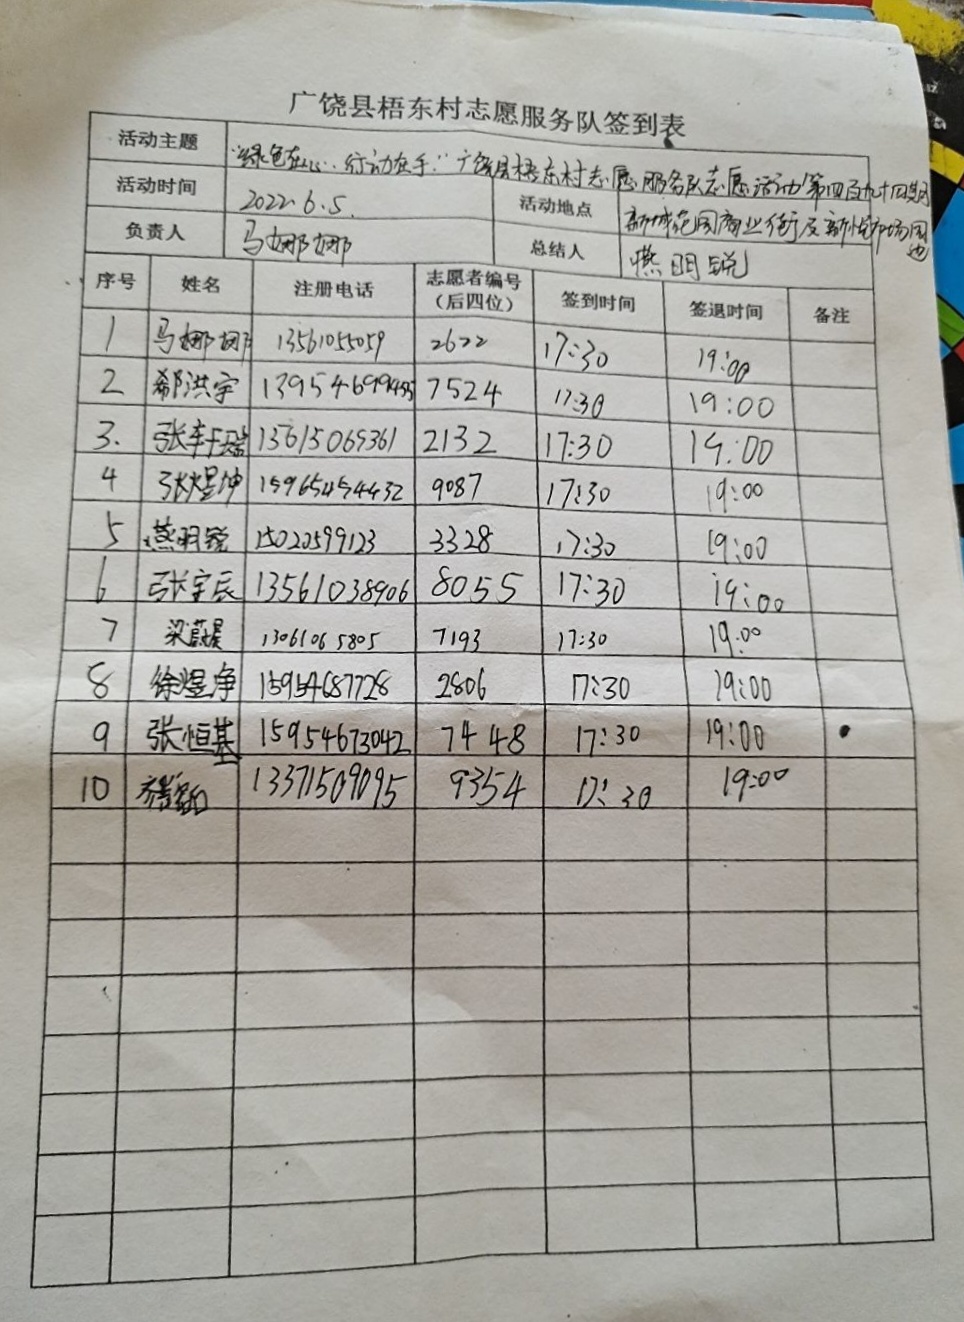 广饶县梧东村志愿服务队签到表
活动主题 "绿色在心、行动在手"广饶县梧东村志愿服务队志愿活动第四百九十四期
活动时间 2022.6.5. 活动地点 新城花园商业街及新悦市场周边
负责人 马娜娜 总结人 燕明锐
序号 姓名 注册电话 志愿者编号（后四位） 签到时间 签退时间 备注
1 马娜娜 13561055059 2622 17:30 19:00
2 郗洪宇 7524 17:30 19:00
3. 张轩瑞 13615069361 2132 17:30 19:00
4 张煜坤 15965454432 9087 17:30 19:00
5 燕明锐 15020599123 3328 17:30 19:00
6 张宇辰 13561038906 8055 17:30 19:00
7 梁蔚晨 13061065805 7193 17:30 19:00
8 徐煜净 15954687728 2806 17:30 19:00
9 张恒基 15954673042 7448 17:30 19:00
10 13371509095 9354 17:30 19:00